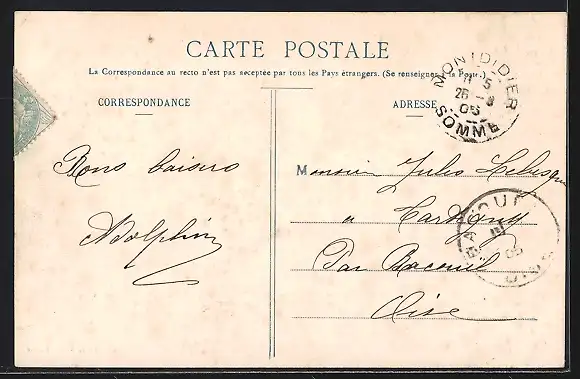 CARTE POSTALE
La Correspondance au recto n'est pas acceptée par tous les Pays étrangers. (Se renseigner à la Poste.)
CORRESPONDANCE
ADRESSE
MONTDIDIER
11 5
26 - 8
05
SOMME
Bons baisers
Adolphine
Monsieur Jules
a
Par Bacouel
Oise